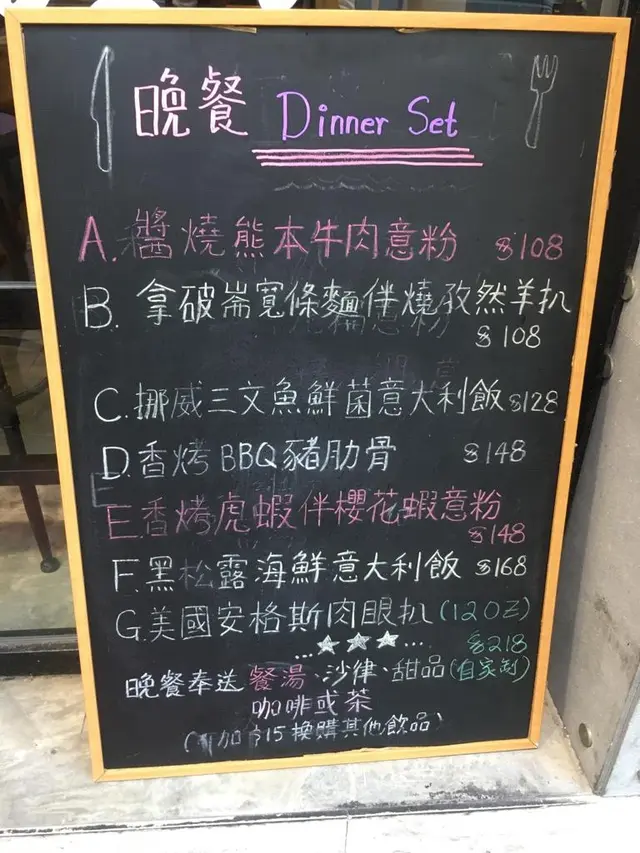 晚餐 Dinner Set
A. 醬燒熊本牛肉意粉 $108
B. 拿破崙寬條麵伴燒孜然羊扒
$108
C. 挪威三文魚鮮菌意大利飯 $128
D. 香烤BBQ豬肋骨 $148
E. 香烤虎蝦伴櫻花蝦意粉
$148
F. 黑松露海鮮意大利飯 $168
G. 美國安格斯肉眼扒(12OZ)
...★★★... $218
晚餐奉送餐湯、沙律、甜品(自家制)
咖啡或茶
(可加$15換購其他飲品)